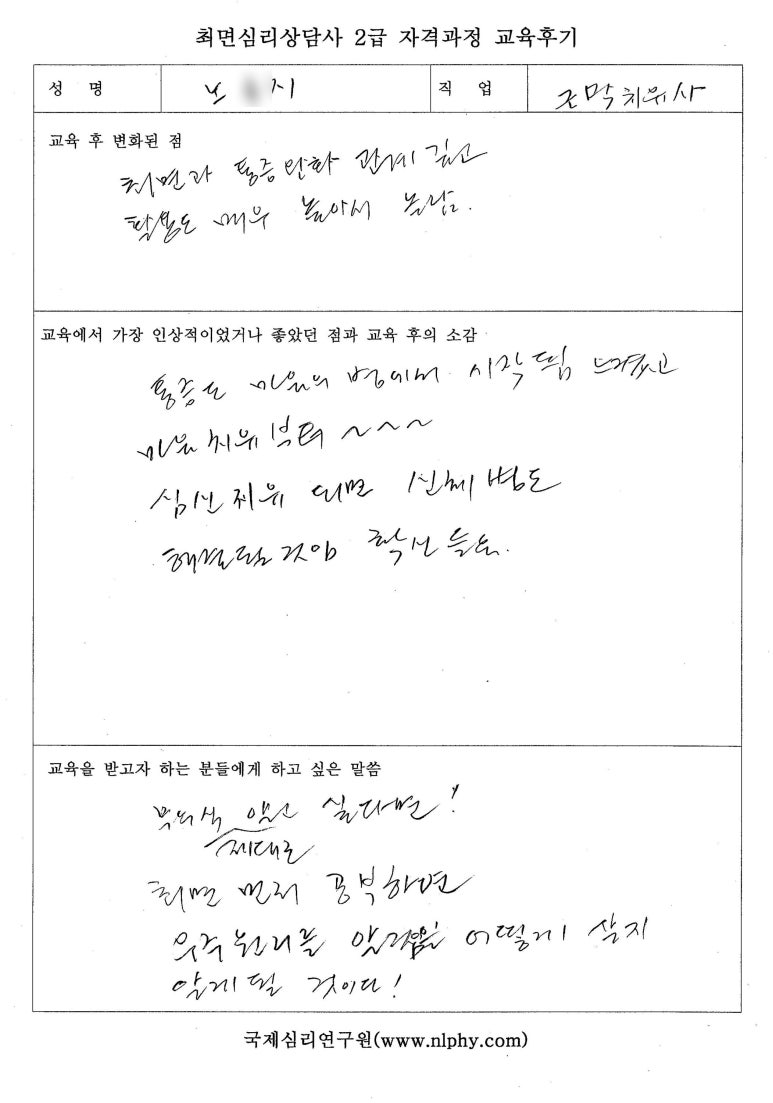 최면심리상담사 2급 자격과정 교육후기
성 명 노 지 직 업 근막치유사
교육 후 변화된 점
최면과 통증완화 관계 깊고
활용도 매우 높아서 놀람.
교육에서 가장 인상적이었거나 좋았던 점과 교육 후의 소감
통증도 마음의 병에서 시작됨 느꼈고
마음치유부터 ~~~
심신치유 되면 신체병도
해결될것임 확신 들음.
교육을 받고자 하는 분들에게 하고 싶은 말씀
무의식 알고 싶다면!
제대로
최면 먼저 공부하면
우주원리를 어떻게 살지
알게 될 것이다!
국제심리연구원(www.nlphy.com)